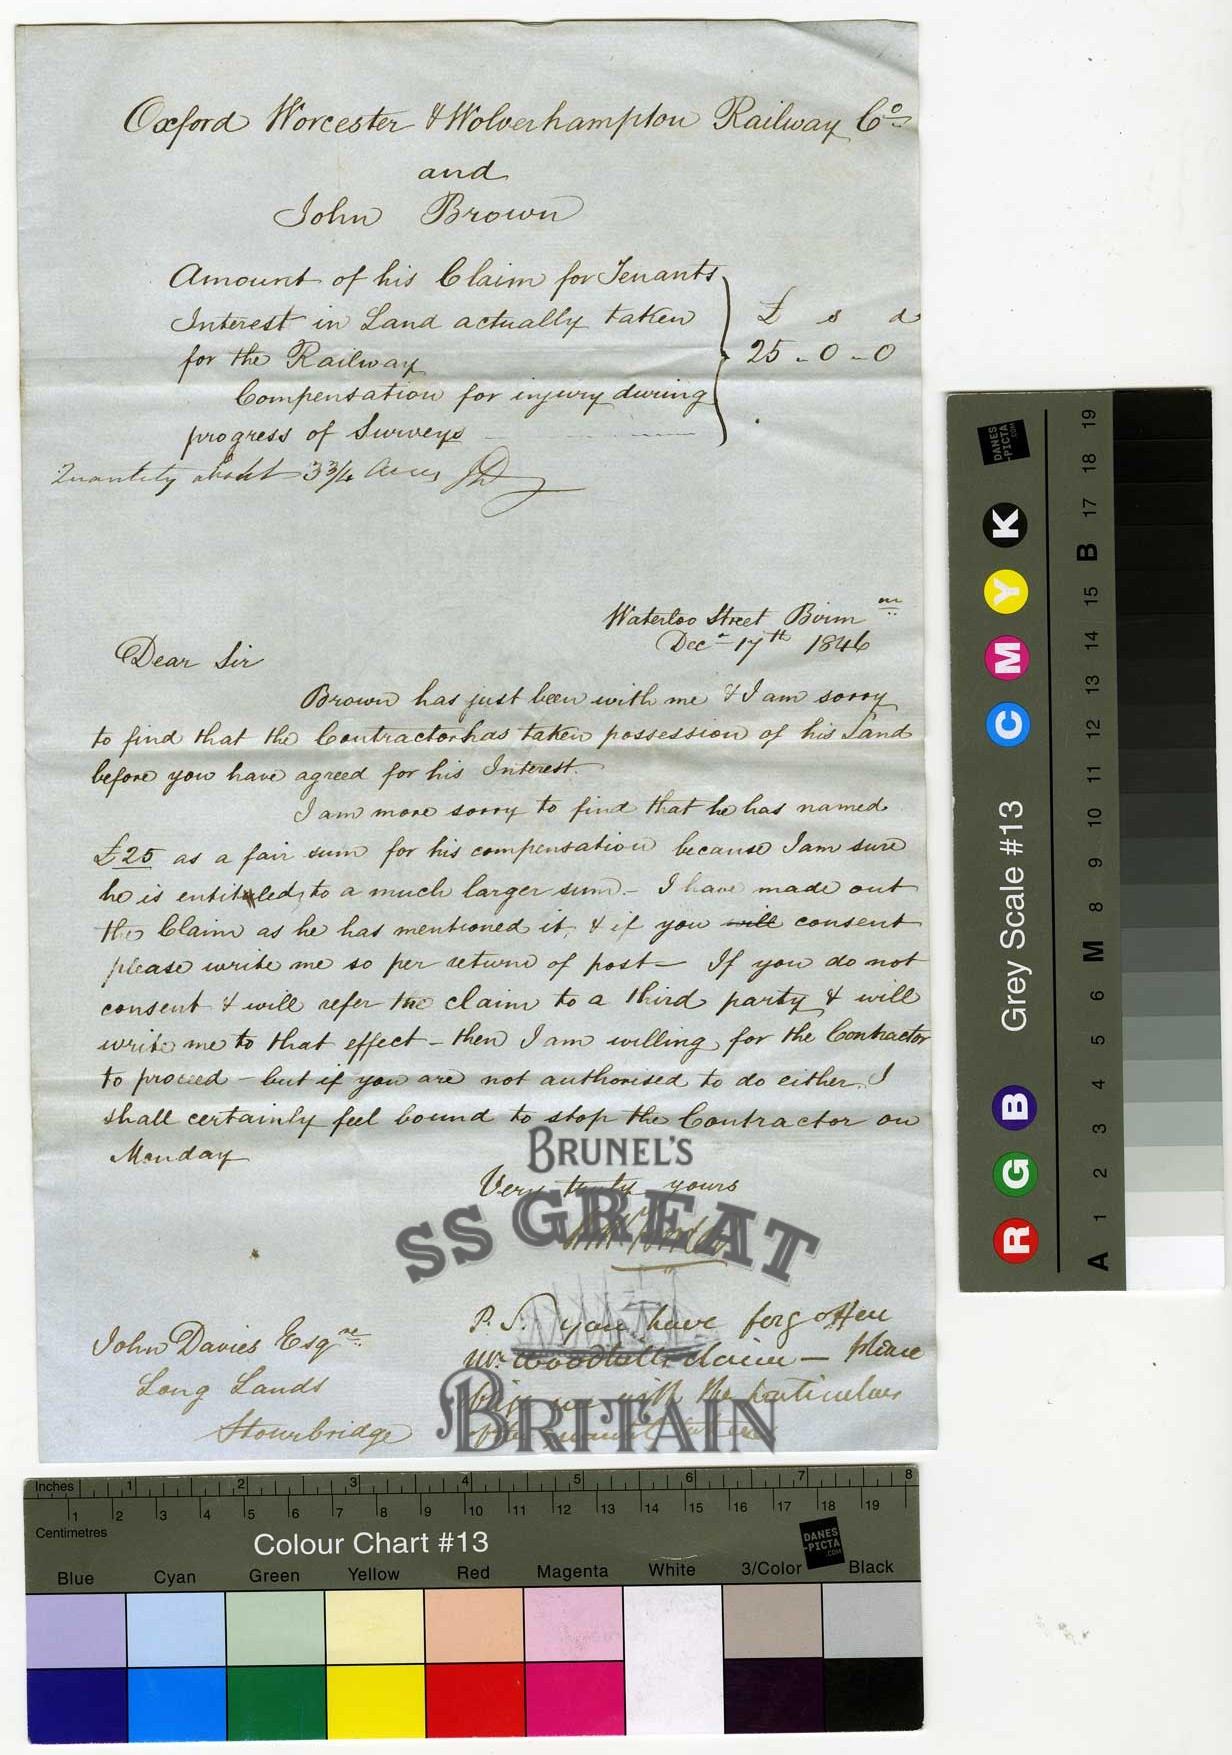 Oxford Worcester & Wolverhampton Railway Co
and
John Brown
Amount of his Claim for Tenants
Interest in Land actually taken
for the Railway
Compensation for injury during
progress of Surveys
£ s d
25 - 0 - 0
Quantity about 3 3/4 Acres JD
Waterloo Street Birm m
Decr 17th 1846
Dear Sir
Brown has just been with me & I am sorry
to find that the Contractor has taken possession of his Land
before you have agreed for his Interest.
I am more sorry to find that he has named
£25 as a fair sum for his compensation because I am sure
he is entitled, to a much larger sum - I have made out
the Claim as he has mentioned it, & if you will consent
please write me so per return of post - If you do not
consent & will refer the claim to a third party & will
write me to that effect - then I am willing for the Contractor
to proceed - but if you are not authorised to do either, I
shall certainly feel bound to stop the Contractor on
Monday
Very truly yours
P.S. you have forgotten
Mr Woodhill's claim - please
with the particulars
of the
John Davies Esqre
Long Lands
Stourbridge
BRUNEL'S
SS GREAT
BRITAIN
DANES
-PICTA
.COM
Grey Scale #13
R G B C M Y K
A 1 2 3 4 5 6 M 8 9 10 11 12 13 14 15 B 17 18 19
Inches 1 2 3 4 5 6 7 8
1 2 3 4 5 6 7 8 9 10 11 12 13 14 15 16 17 18 19
Centimetres
Colour Chart #13
DANES
-PICTA
.COM
Blue Cyan Green Yellow Red Magenta White 3/Color Black